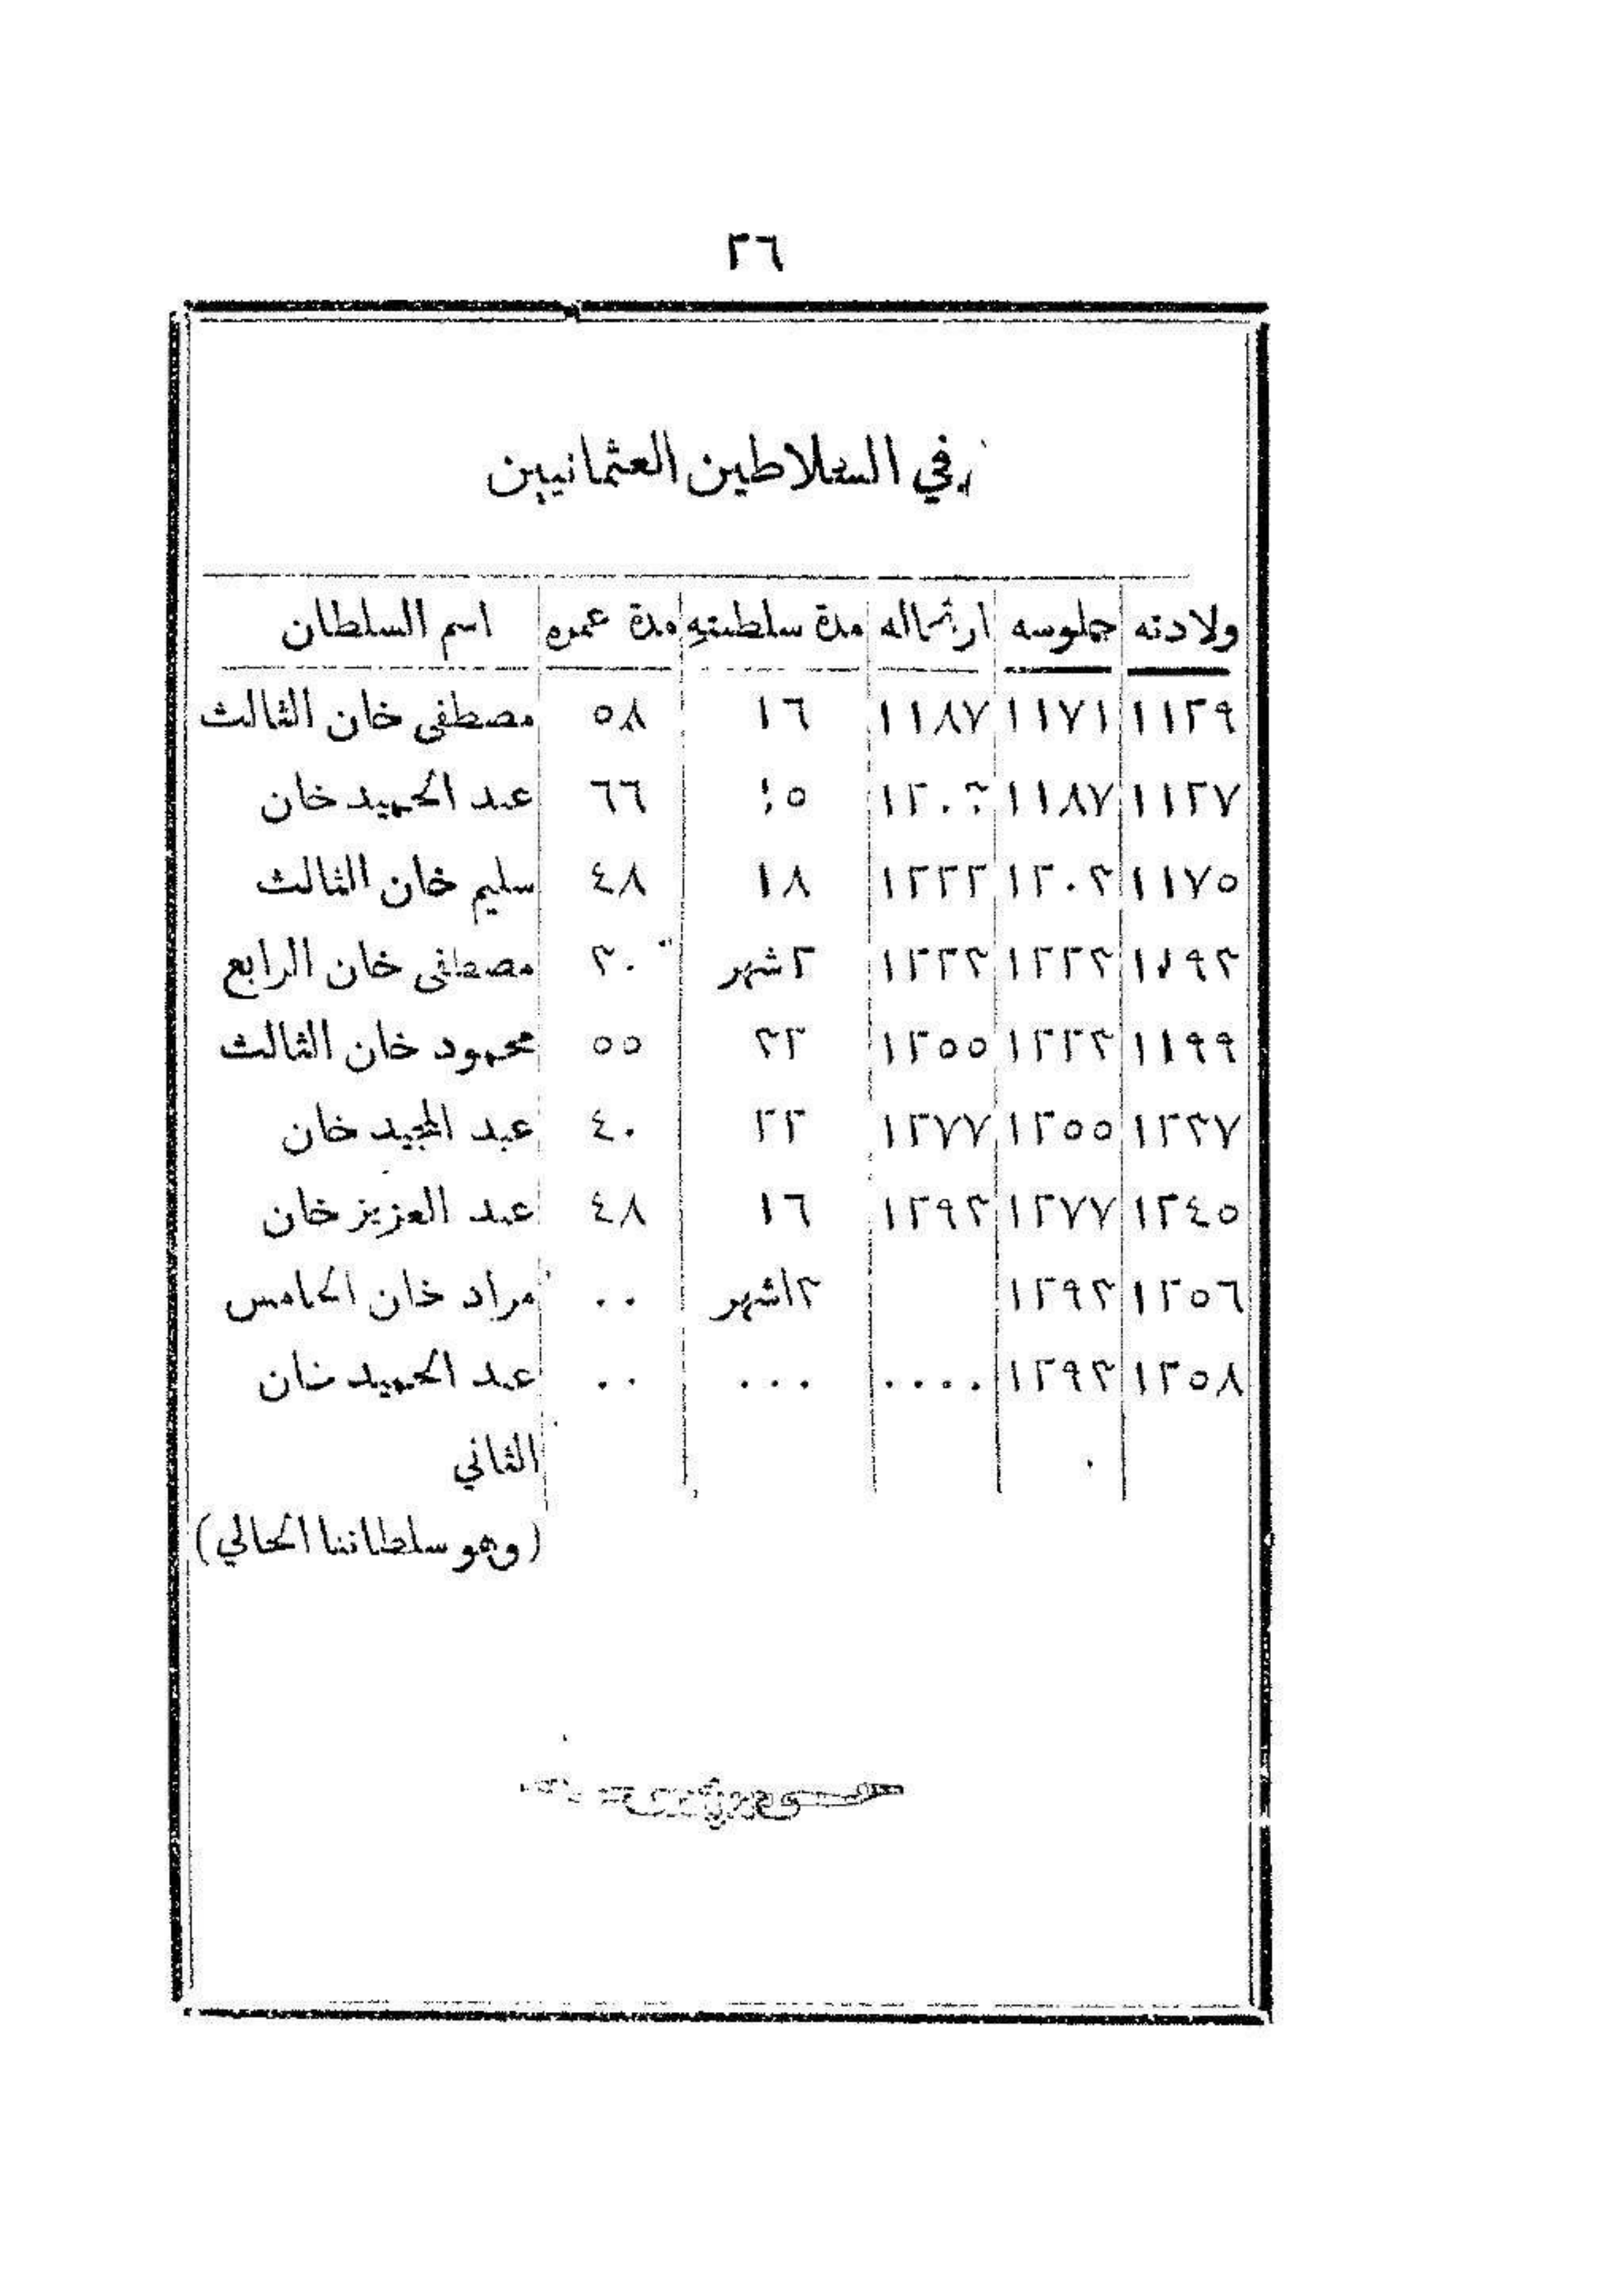 ٢٦
في السلاطين العثمانيين
ولادته جلوسه ارتحاله مدة سلطنتهِ مدة عمره اسم السلطان
١١٢٩ ١١٧١ ١١٨٧ ١٦ ٥٨ مصطفى خان الثالث
١١٣٧ ١١٨٧ ١٢٠٣ ١٥ ٦٦ عبد الحميد خان
١١٧٥ ١٢٠٣ ١٢٢٢ ١٨ ٤٨ سليم خان الثالث
١١٩٣ ١٢٢٣ ١٢٢٣ ٢شهر ٣٠ مصطفى خان الرابع
١١٩٩ ١٢٢٣ ١٢٥٥ ٣٢ ٥٥ محمود خان الثالث
١٢٣٧ ١٢٥٥ ١٢٧٧ ٢٢ ٤٠ عبد المجيد خان
١٢٤٥ ١٢٧٧ ١٢٩٣ ١٦ ٤٨ عبد العزيز خان
١٢٥٦ ١٢٩٣ ٣اشهر ٠٠ مراد خان الخامس
١٢٥٨ ١٢٩٣ ٠٠٠٠ ٠٠٠ ٠٠ عبد الحميد خان
الثاني
(وهو سلطاننا الحالي)